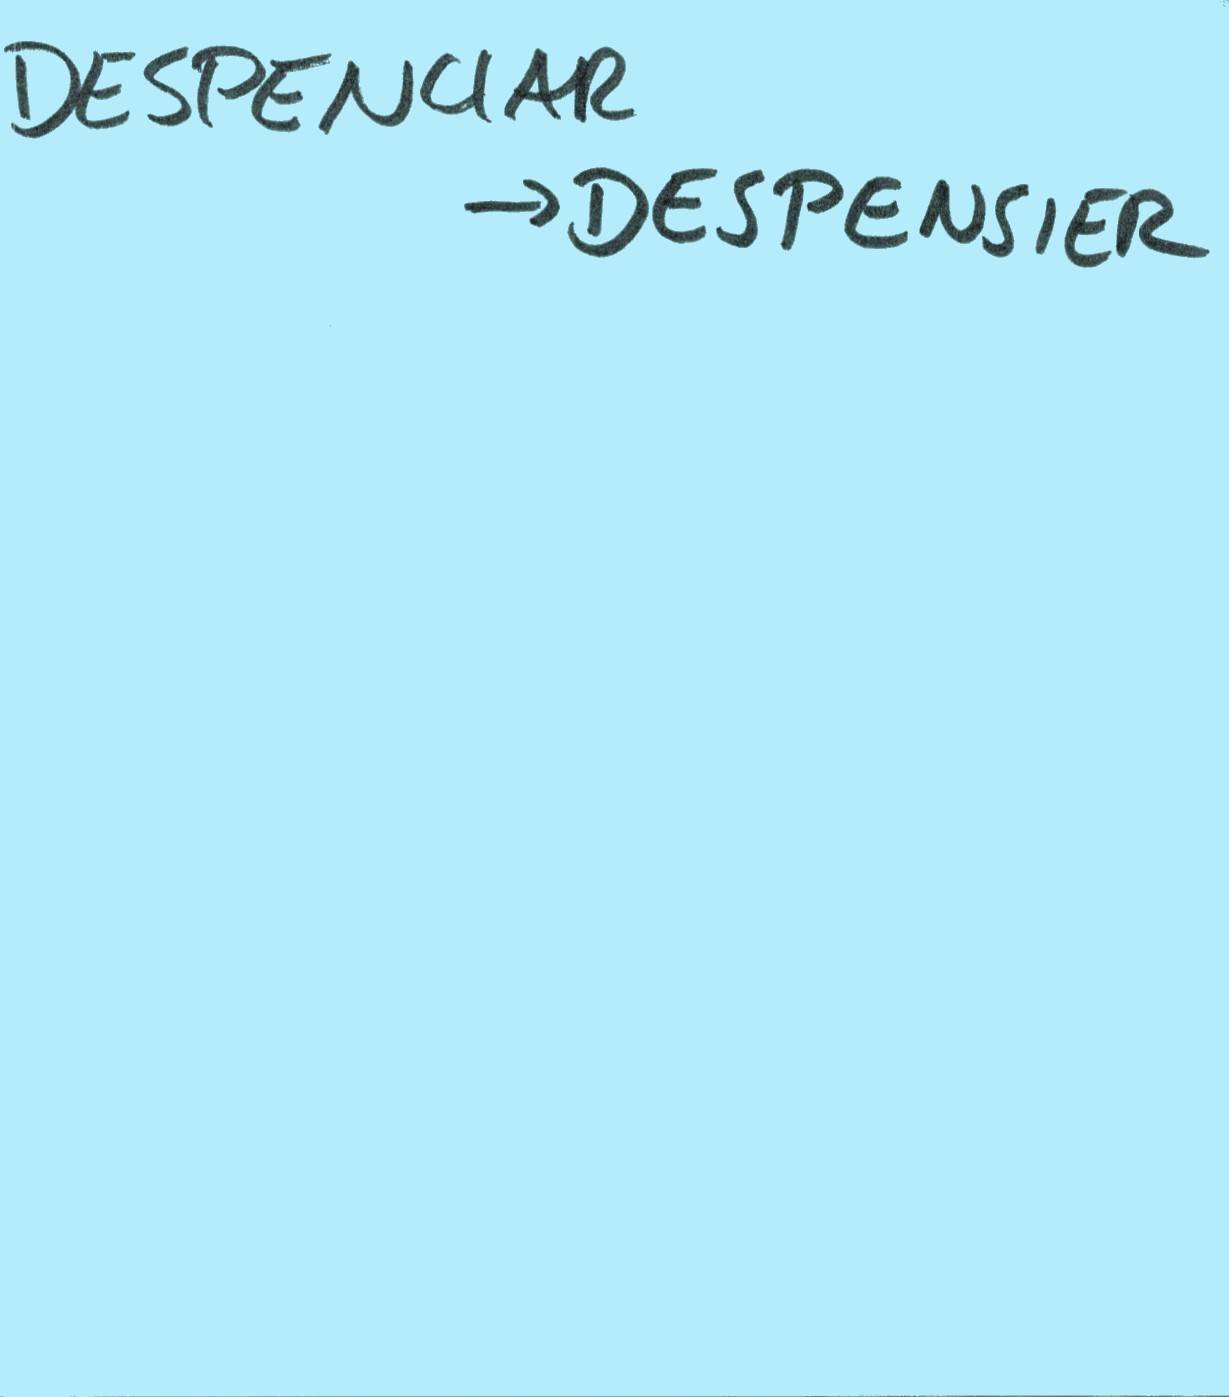 DESPENCIAR
→ DESPENSIER